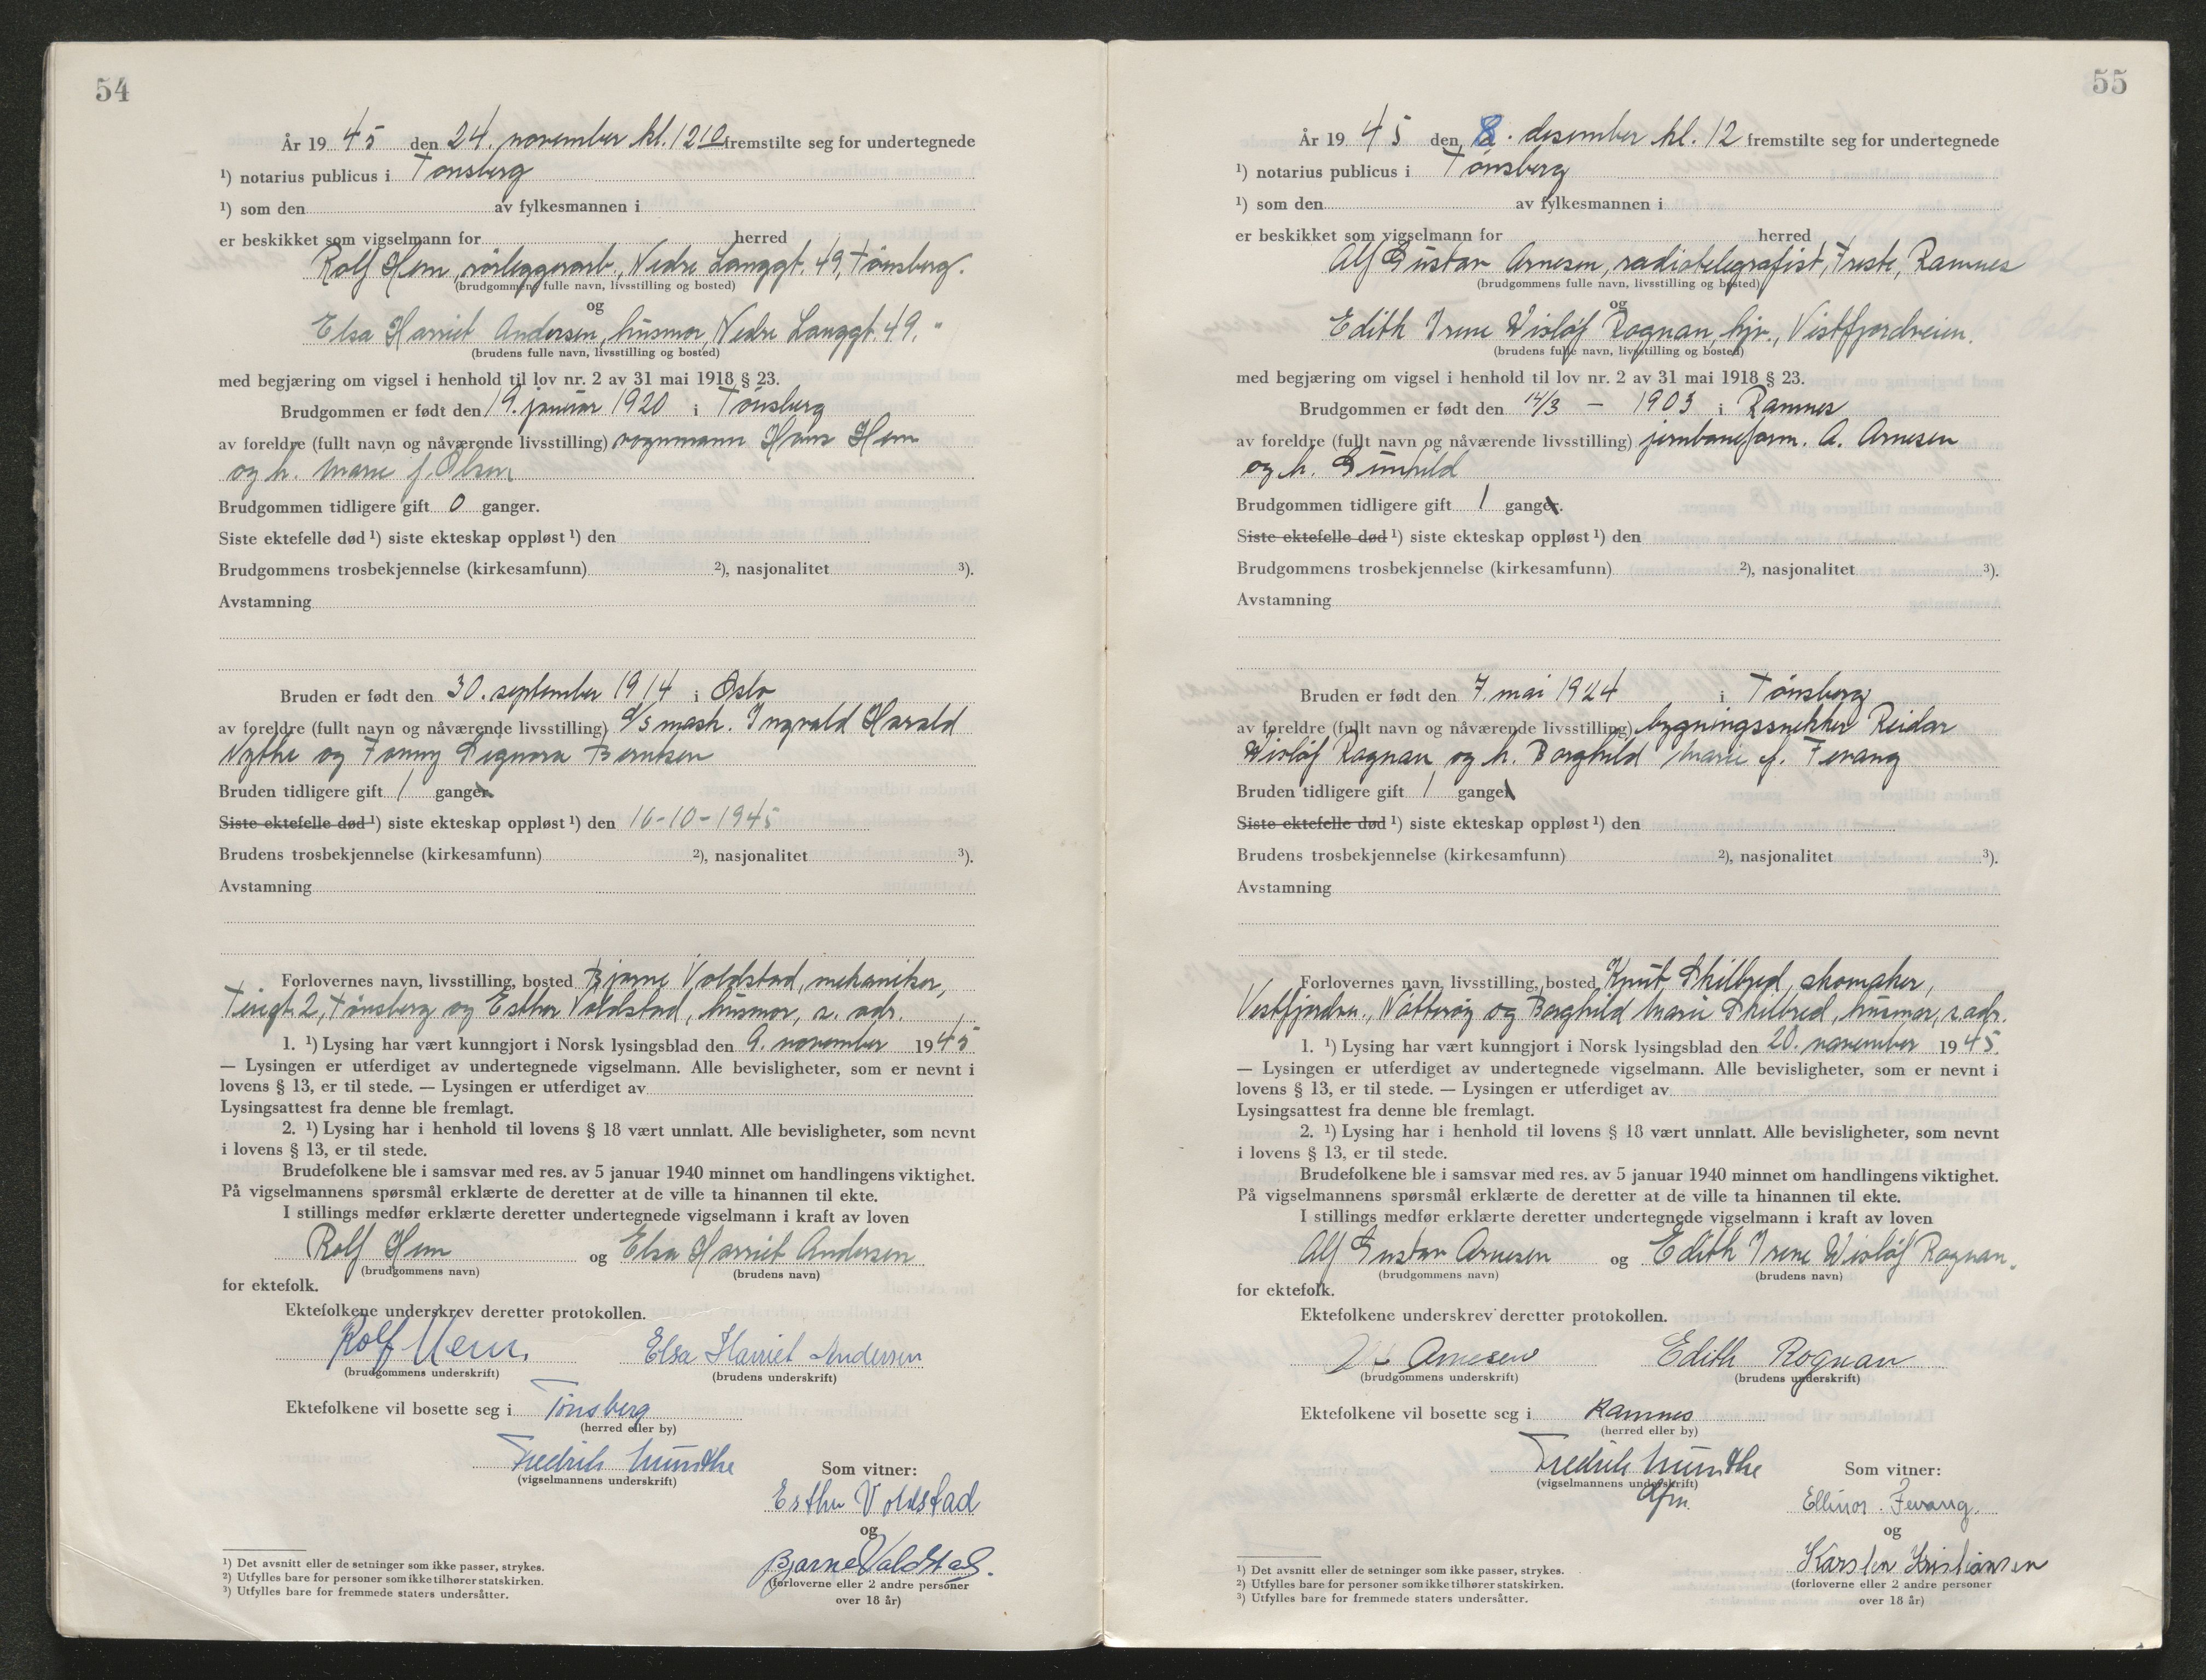 54
År 1945 den 24. november kl. 12 10 fremstilte seg for undertegnede
¹) notarius publicus i Tønsberg
¹) som den av fylkesmannen i
er beskikket som vigselmann for herred
Rolf Hem, rørleggerarb., Nedre Langgt. 49, Tønsberg.
(brudgommens fulle navn, livsstilling og bosted)
og
Elsa Harriet Andersen, husmor, Nedre Langgt. 49, "
(brudens fulle navn, livsstilling og bosted)
med begjæring om vigsel i henhold til lov nr. 2 av 31 mai 1918 § 23.
Brudgommen er født den 19. januar 1920 i Tønsberg
av foreldre (fullt navn og nåværende livsstilling) vognmann Hans Hem
og h. Marie f. Olsen
Brudgommen tidligere gift 0 ganger.
Siste ektefelle død ¹) siste ekteskap oppløst ¹) den
Brudgommens trosbekjennelse (kirkesamfunn) ²), nasjonalitet ³).
Avstamning
Bruden er født den 30. september 1914 i Oslo
av foreldre (fullt navn og nåværende livsstilling) d/s mask. Ingvald Harald
Nythe og Fanny Signora Berntsen
Bruden tidligere gift 1 ganger
Siste ektefelle død ¹) siste ekteskap oppløst ¹) den 16-10-1945
Brudens trosbekjennelse (kirkesamfunn) ²), nasjonalitet ³).
Avstamning
Forlovernes navn, livsstilling, bosted Bjarne Voldstad, mekaniker,
2, Tønsberg og Esther Voldstad, husmor, s. adr.
1. ¹) Lysing har vært kunngjort i Norsk lysingsblad den 9. november 1945
— Lysingen er utferdiget av undertegnede vigselmann. Alle bevisligheter, som er nevnt i
lovens § 13, er til stede. — Lysingen er utferdiget av
Lysingsattest fra denne ble fremlagt.
2. ¹) Lysing har i henhold til lovens § 18 vært unnlatt. Alle bevisligheter, som nevnt
i lovens § 13, er til stede.
Brudefolkene ble i samsvar med res. av 5 januar 1940 minnet om handlingens viktighet.
På vigselmannens spørsmål erklærte de deretter at de ville ta hinannen til ekte.
I stillings medfør erklærte deretter undertegnede vigselmann i kraft av loven
Rolf Hem og Elsa Harriet Andersen
(brudgommens navn) (brudens navn)
for ektefolk.
Ektefolkene underskrev deretter protokollen.
Rolf Hem. Elsa Harriet Andersen
(brudgommens underskrift) (brudens underskrift)
Ektefolkene vil bosette seg i Tønsberg
(herred eller by)
Fredrik Munthe
(vigselmannens underskrift)
Som vitner:
Esther Voldstad
og
Bjarne Voldstad.
(forloverne eller 2 andre personer
over 18 år)
¹) Det avsnitt eller de setninger som ikke passer, strykes.
²) Utfylles bare for personer som ikke tilhører statskirken.
³) Utfylles bare for fremmede staters undersåtter.
55
År 1945 den 8. desember kl. 12 fremstilte seg for undertegnede
¹) notarius publicus i Tønsberg
¹) som den av fylkesmannen i
er beskikket som vigselmann for herred
Alf Gustav Arnesen, radiotelegrafist, Freste, Ramnes
(brudgommens fulle navn, livsstilling og bosted)
og
Edith Irene Wisløf Rognan, hjv., Vestfjordveien.
(brudens fulle navn, livsstilling og bosted)
med begjæring om vigsel i henhold til lov nr. 2 av 31 mai 1918 § 23.
Brudgommen er født den 14/3 - 1903 i Ramnes
av foreldre (fullt navn og nåværende livsstilling) jernbaneform. A. Arnesen
og h. Gunhild
Brudgommen tidligere gift 1 ganger.
Siste ektefelle død ¹) siste ekteskap oppløst ¹) den
Brudgommens trosbekjennelse (kirkesamfunn) ²), nasjonalitet ³).
Avstamning
Bruden er født den 7. mai 1924 i Tønsberg
av foreldre (fullt navn og nåværende livsstilling) bygningssnekker Reidar
Wisløf Rognan og h. Borghild Marie f. Fevang
Bruden tidligere gift 1 ganger
Siste ektefelle død ¹) siste ekteskap oppløst ¹) den
Brudens trosbekjennelse (kirkesamfunn) ²), nasjonalitet ³).
Avstamning
Forlovernes navn, livsstilling, bosted Knut Skilbred, skomaker,
Vestfjordv., Nøtterøy og Borghild Marie Skilbred, husmor, s. adr.
1. ¹) Lysing har vært kunngjort i Norsk lysingsblad den 20. november 1945.
— Lysingen er utferdiget av undertegnede vigselmann. Alle bevisligheter, som er nevnt i
lovens § 13, er til stede. — Lysingen er utferdiget av
Lysingsattest fra denne ble fremlagt.
2. ¹) Lysing har i henhold til lovens § 18 vært unnlatt. Alle bevisligheter, som nevnt
i lovens § 13, er til stede.
Brudefolkene ble i samsvar med res. av 5 januar 1940 minnet om handlingens viktighet.
På vigselmannens spørsmål erklærte de deretter at de ville ta hinannen til ekte.
I stillings medfør erklærte deretter undertegnede vigselmann i kraft av loven
Alf Gustav Arnesen og Edith Irene Wisløf Rognan.
(brudgommens navn) (brudens navn)
for ektefolk.
Ektefolkene underskrev deretter protokollen.
Arnesen Edith Rognan
(brudgommens underskrift) (brudens underskrift)
Ektefolkene vil bosette seg i Ramnes
(herred eller by)
Fredrik Munthe
(vigselmannens underskrift)
Som vitner:
Ellinor Fevang.
og
Karsten Kristiansen
(forloverne eller 2 andre personer
over 18 år)
¹) Det avsnitt eller de setninger som ikke passer, strykes.
²) Utfylles bare for personer som ikke tilhører statskirken.
³) Utfylles bare for fremmede staters undersåtter.